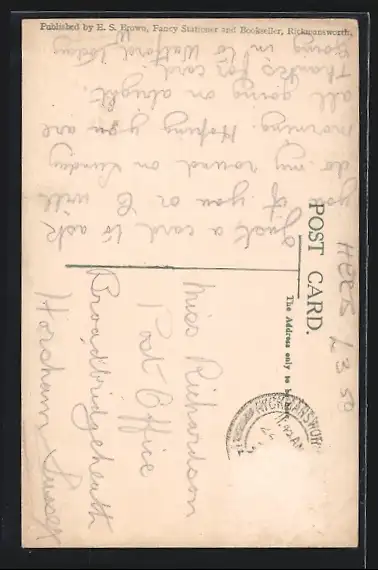 Published by E. S. Brown, Fancy Stationer and Bookseller, Rickmansworth.
POST CARD.
The Address only to be
HERTS L3.50
RICKMANSWORTH
Just a card to ask
you if you or C will
do my round on Sunday
morning. Hoping you are
all going on alright.
Thanks for card.
going in to Watford today
Miss Richardson
Post Office
Broadbridgeheath
Horsham Sussex